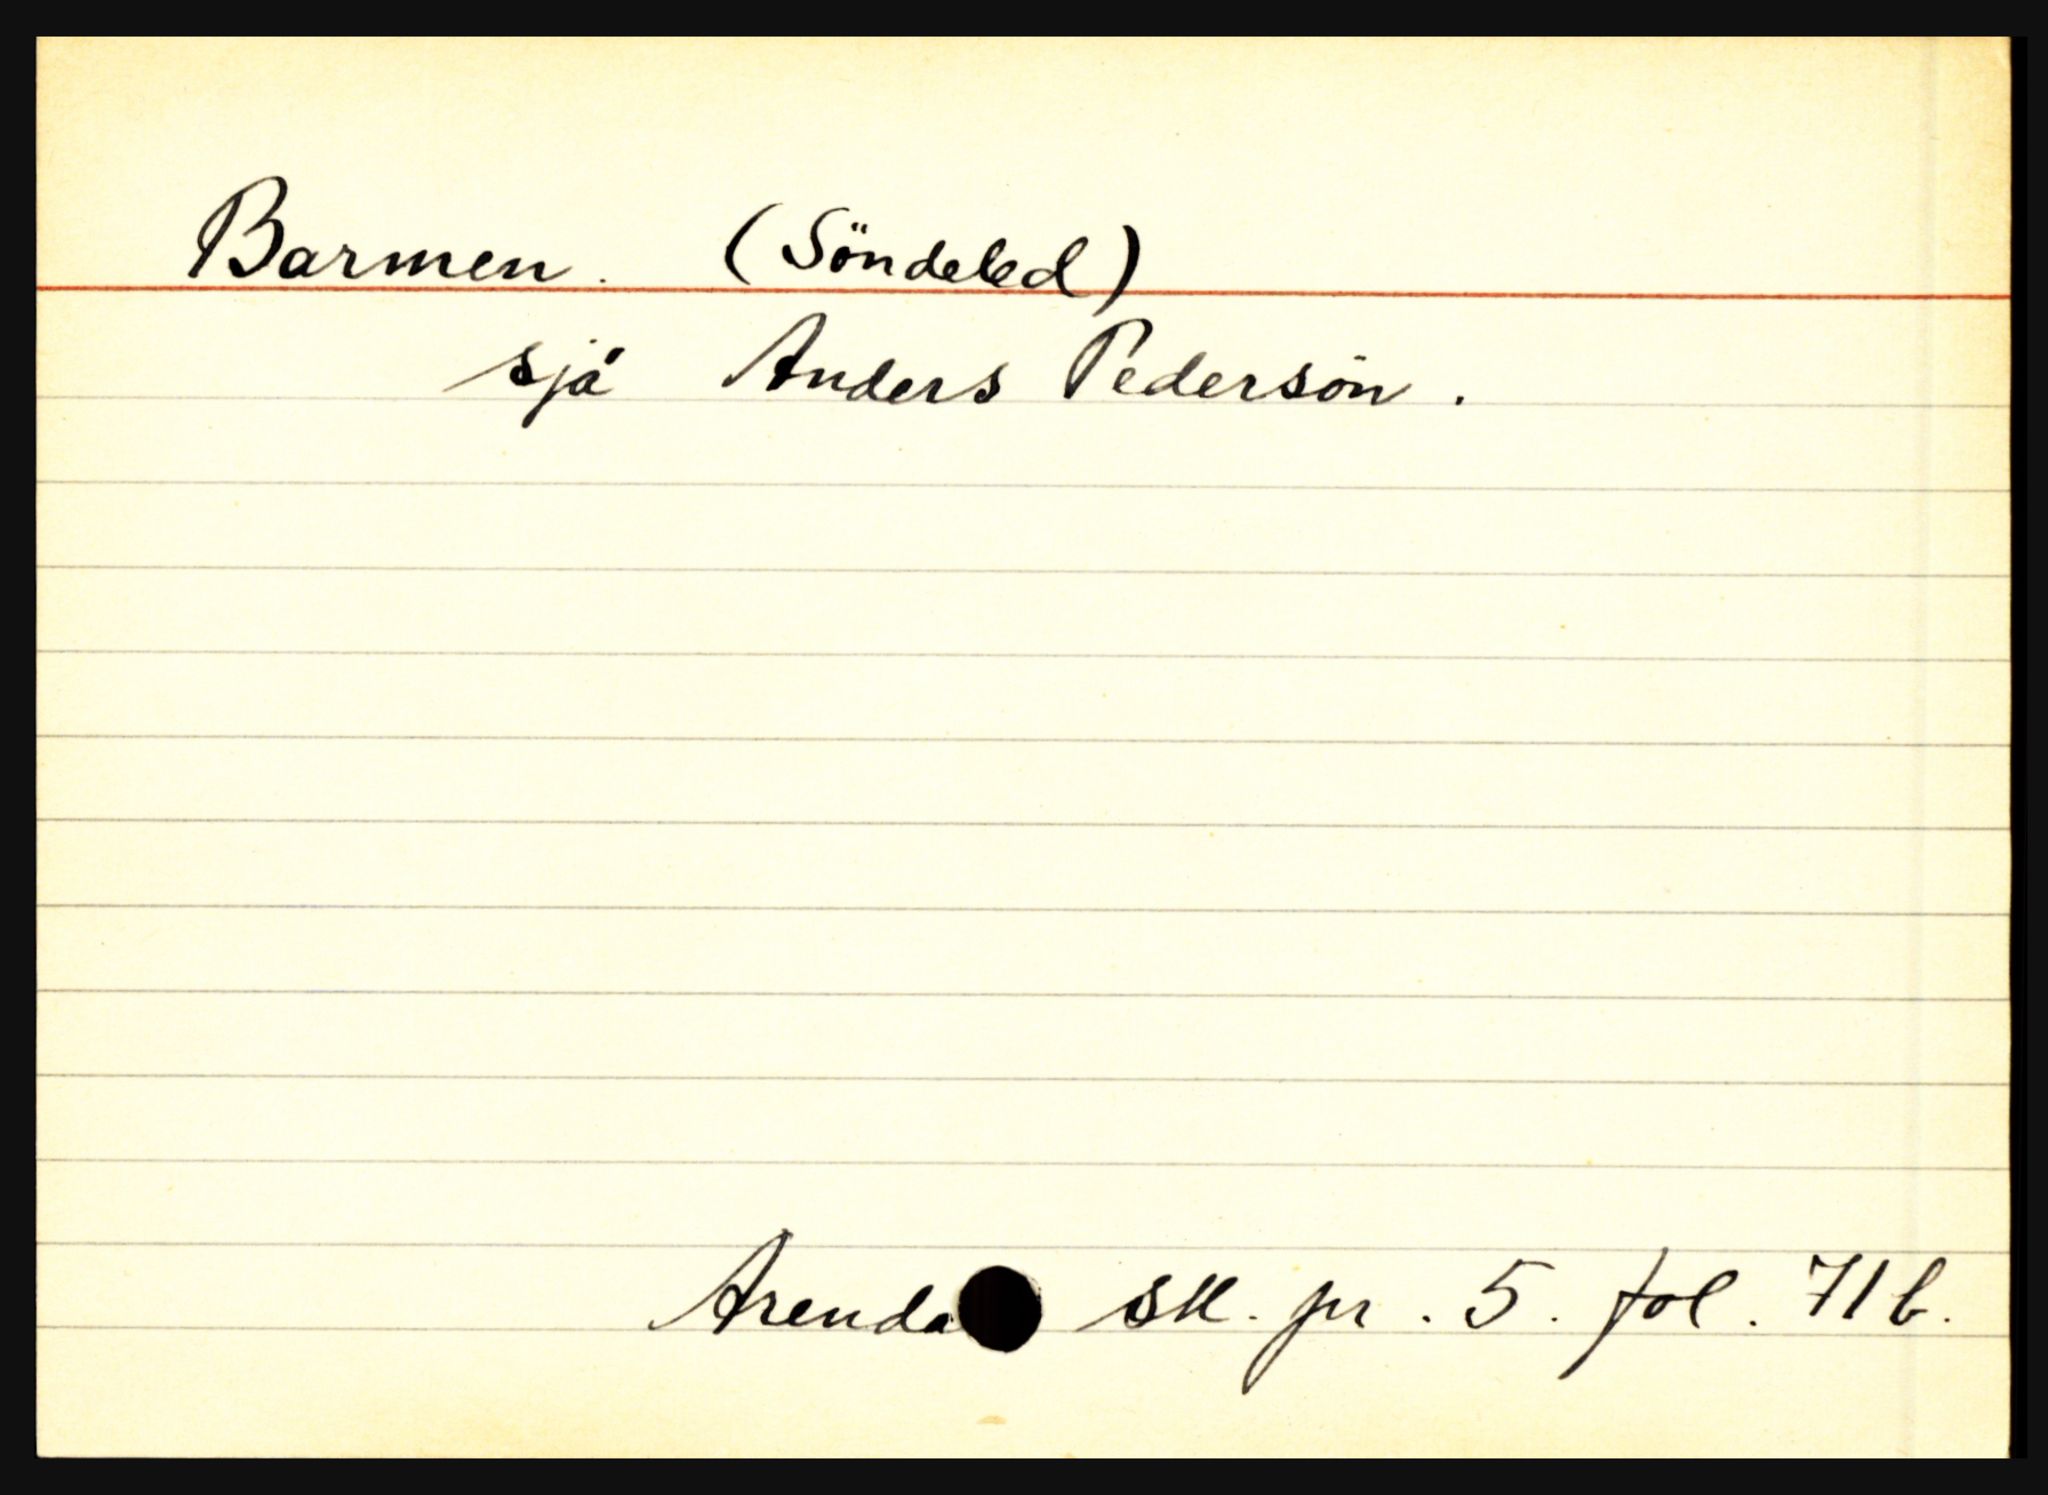 Barmen. (Söndeled)
sjå Anders Pedersön.
Arenda sk. pr. 5. fol. 71 b.